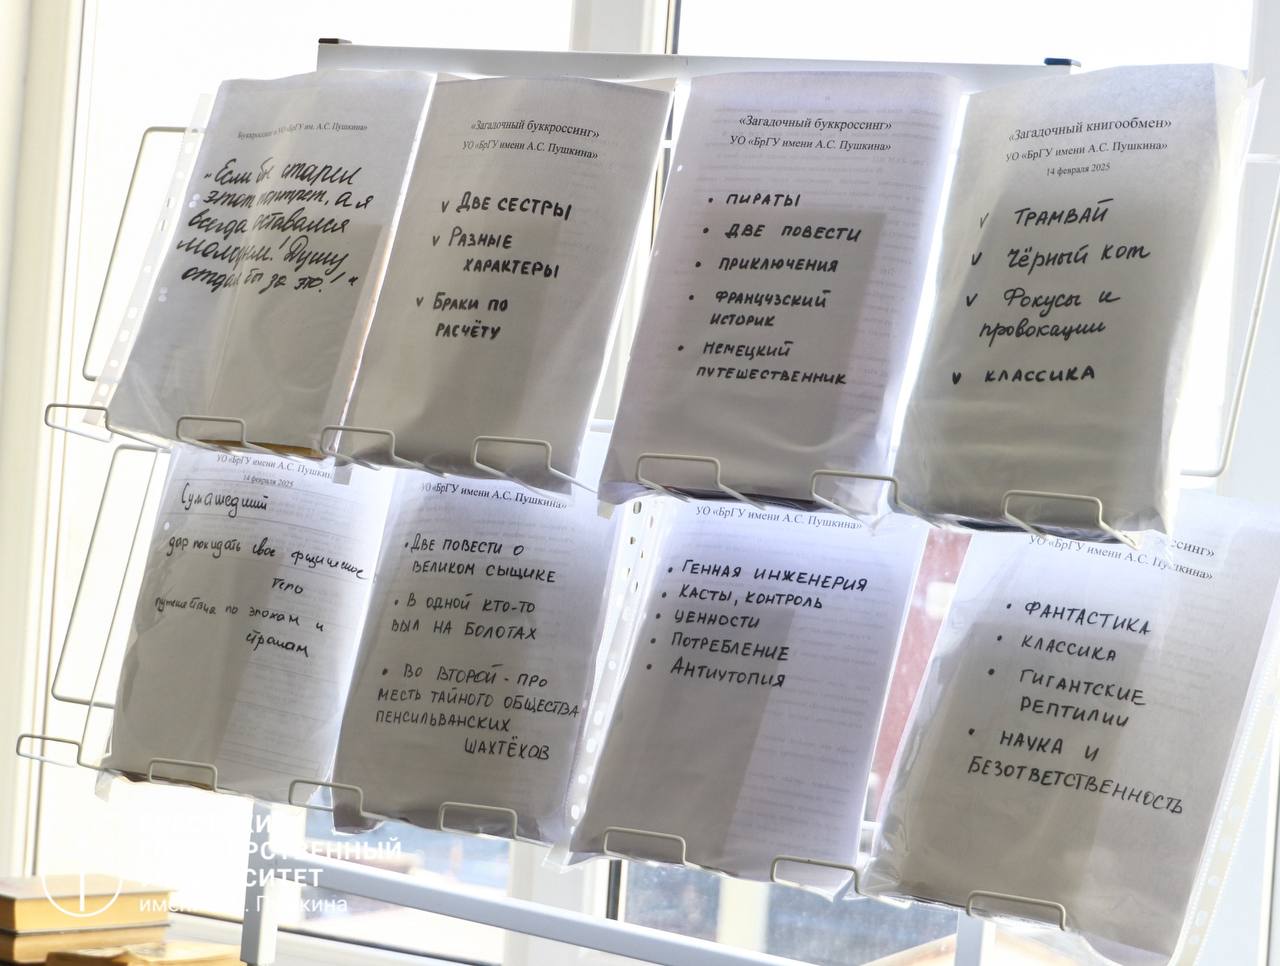 Буккроссинг в УО «БрГУ им. А.С. Пушкина»
„Если бы старел
этот портрет, а я
всегда оставался
молодым! Душу
отдал бы за это!"
«Загадочный буккроссинг»
УО «БрГУ имени А.С. Пушкина»
ДВЕ СЕСТРЫ
РАЗНЫЕ
ХАРАКТЕРЫ
БРАКИ ПО
РАСЧЁТУ
«Загадочный буккроссинг»
УО «БрГУ имени А.С. Пушкина»
• ПИРАТЫ
• ДВЕ ПОВЕСТИ
• ПРИКЛЮЧЕНИЯ
• ФРАНЦУЗСКИЙ
ИСТОРИК
• НЕМЕЦКИЙ
ПУТЕШЕСТВЕННИК
«Загадочный книгообмен»
УО «БрГУ имени А.С. Пушкина»
14 февраля 2025
ТРАМВАЙ
Чёрный кот
Фокусы и
провокации
КЛАССИКА
УО «БрГУ имени А.С. Пушкин
14 февраля 2025
Сумашедший
дар покидать свое физическое
тело
путешествия по эпохам и
странам
УО «БрГУ имени А.С. Пушкина»
• ДВЕ ПОВЕСТИ О
ВЕЛИКОМ СЫЩИКЕ
• В ОДНОЙ КТО-ТО
ВЫЛ НА БОЛОТАХ
• ВО ВТОРОЙ - ПРО
МЕСТЬ ТАЙНОГО ОБЩЕСТВА
ПЕНСИЛЬВАНСКИХ
ШАХТЁРОВ
УО «БрГУ имени А.С. Пушкина»
• ГЕННАЯ ИНЖЕНЕРИЯ
• КАСТЫ, КОНТРОЛЬ
• ЦЕННОСТИ
• ПОТРЕБЛЕНИЕ
• АНТИУТОПИЯ
ссинг»
УО «БрГУ имени А.С. Пушкина»
• ФАНТАСТИКА
• КЛАССИКА
• ГИГАНТСКИЕ
РЕПТИЛИИ
• НАУКА И
БЕЗОТВЕТСТВЕННОСТЬ